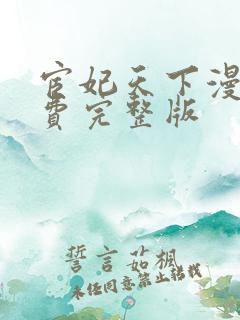 宦妃天下漫
费完整版
誓言茹楓
未经同意禁止转载